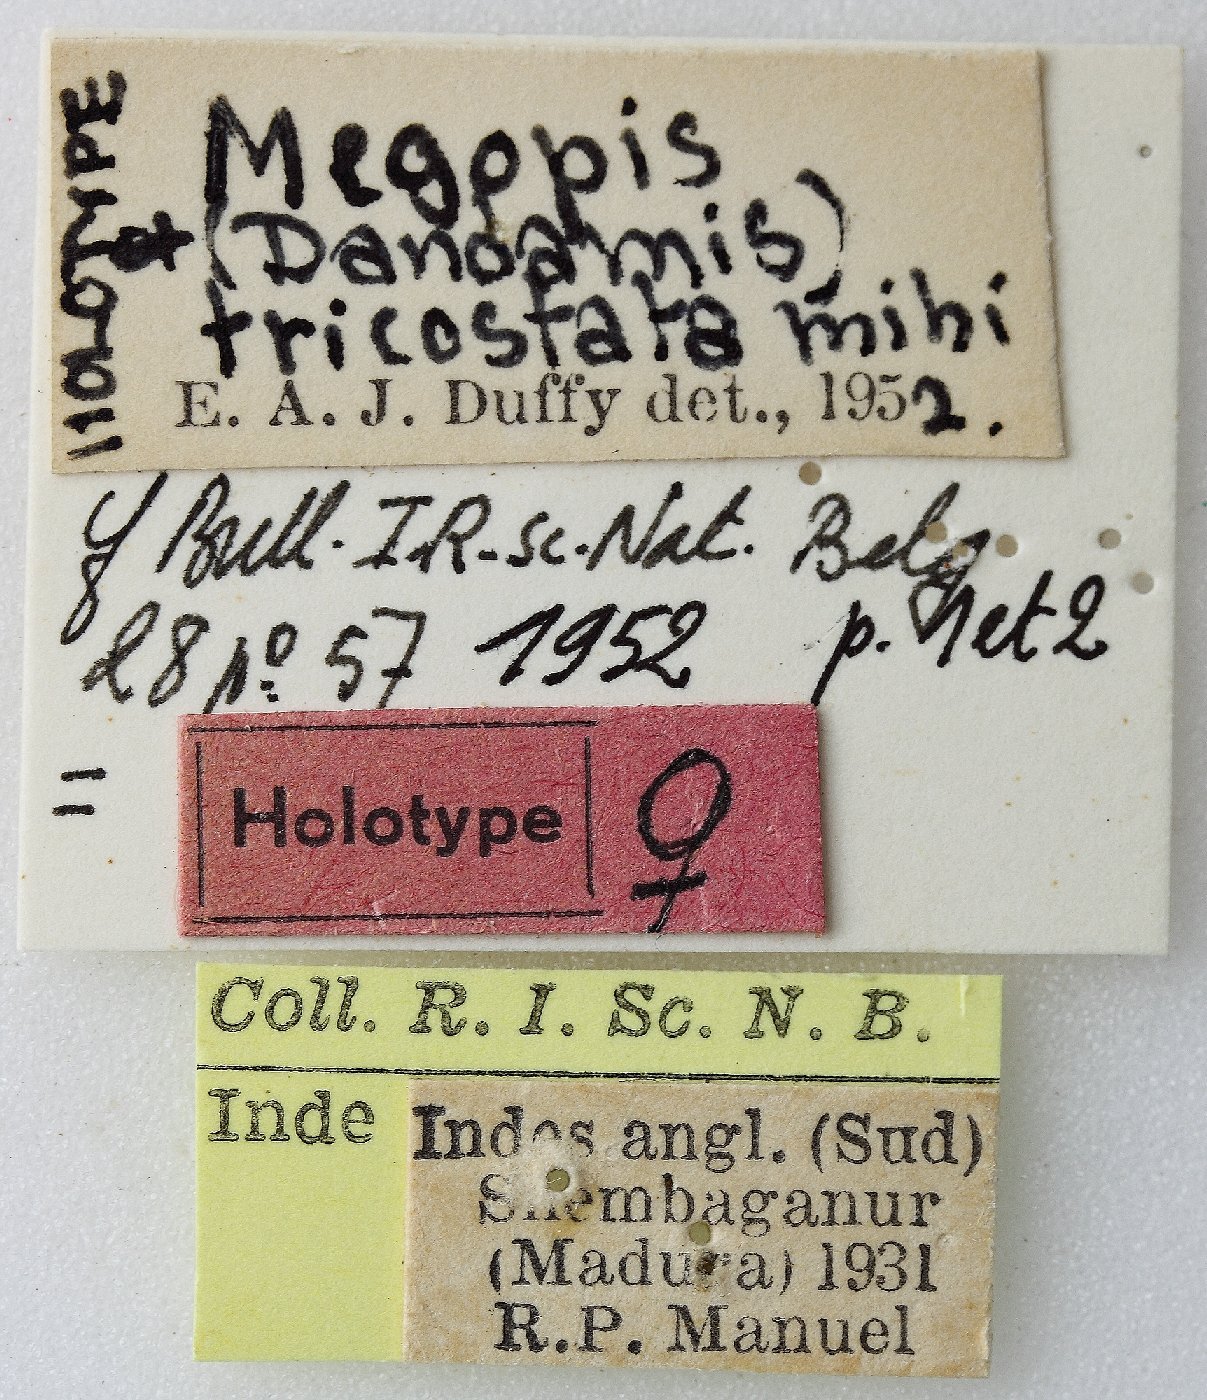 HOLOTYPE ♀
Megopis
(Dandamis)
tricostata mihi
E. A. J. Duffy det., 1952.
cf Bull. I.R.Sc.Nat. Belg
28 no 57 1952 p. 1 et 2
Holotype ♀
Coll. R. I. Sc. N. B.
Inde
Indes angl. (Sud)
Shembaganur
(Madura) 1931
R.P. Manuel